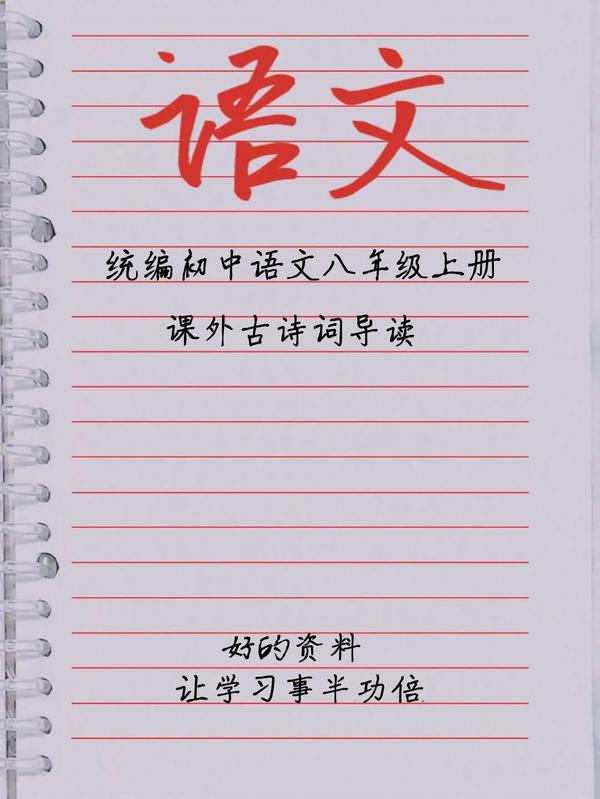 语文
统编初中语文八年级上册
课外古诗词导读
好的资料
让学习事半功倍